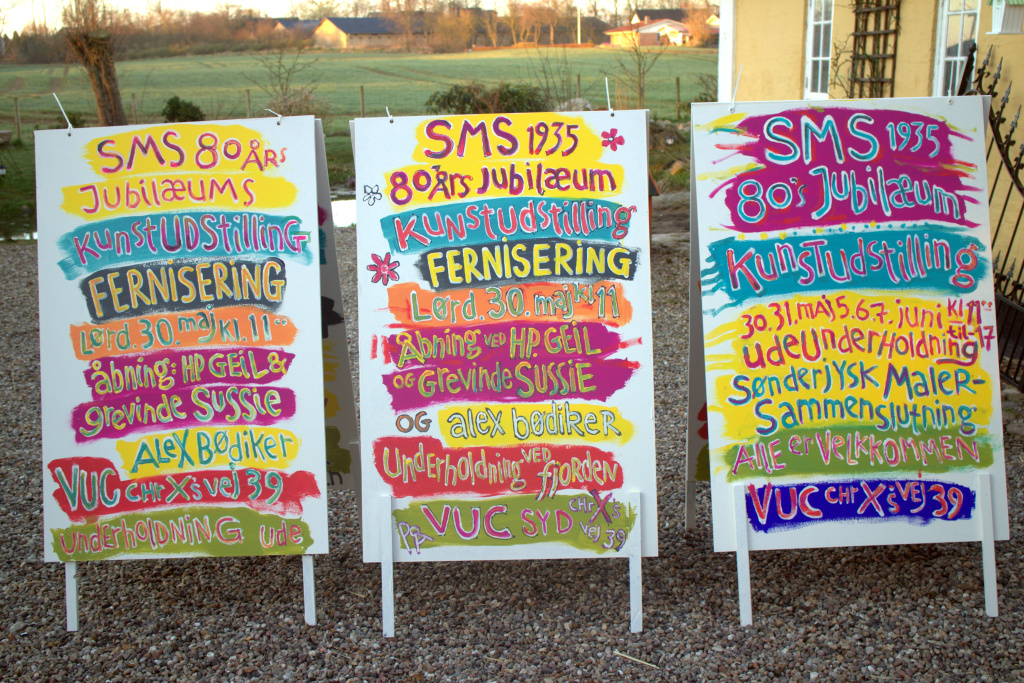 SMS 80 Års
Jubilæums
KunstUDStilliNG
FERNISERING
Lørd. 30. maj Kl. 11⁰⁰
åbning: HP GEIL &
grevinde SUSSie
ALEX BØDiKER
VUC CHR X's Vej 39
UNDERHOLDNING ude
SMS 1935
80 Års Jubilæum
KUNSTUDSTilling
FERNISERING
Lørd. 30. maj kl 11
Åbning VED HP. GEIL
OG Grevinde SUSSIE
OG alex bødiker
Underholdning VED fjorden
på VUC SYD CHR X's Vej 39
SMS 1935
80's Jubilæum
Kunstudstilling
30. 31. maj 5. 6. 7. juni Kl 11⁰⁰ til -17
udeUnderHoldning
Sønderjysk Maler-
Sammenslutning
Alle er Velkkommen
VUC CHR X's Vej 39